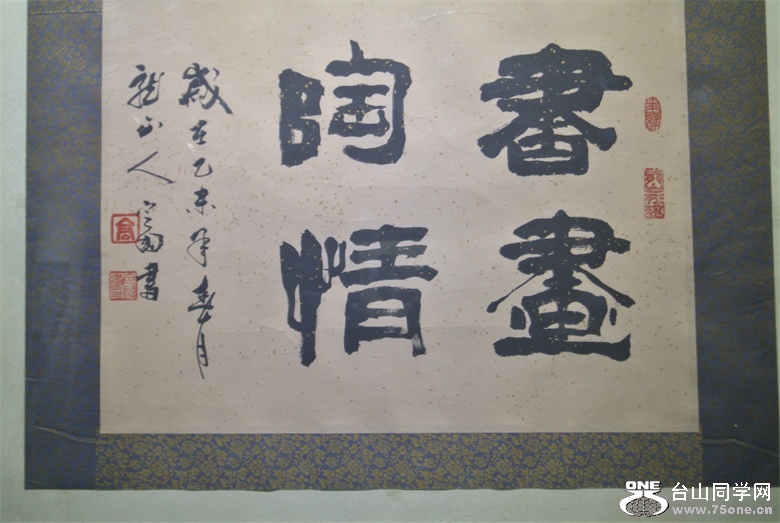 書畫
陶情
歲在乙未年春月
龍山人
書
ONE
台山同学网
www.75one.cn